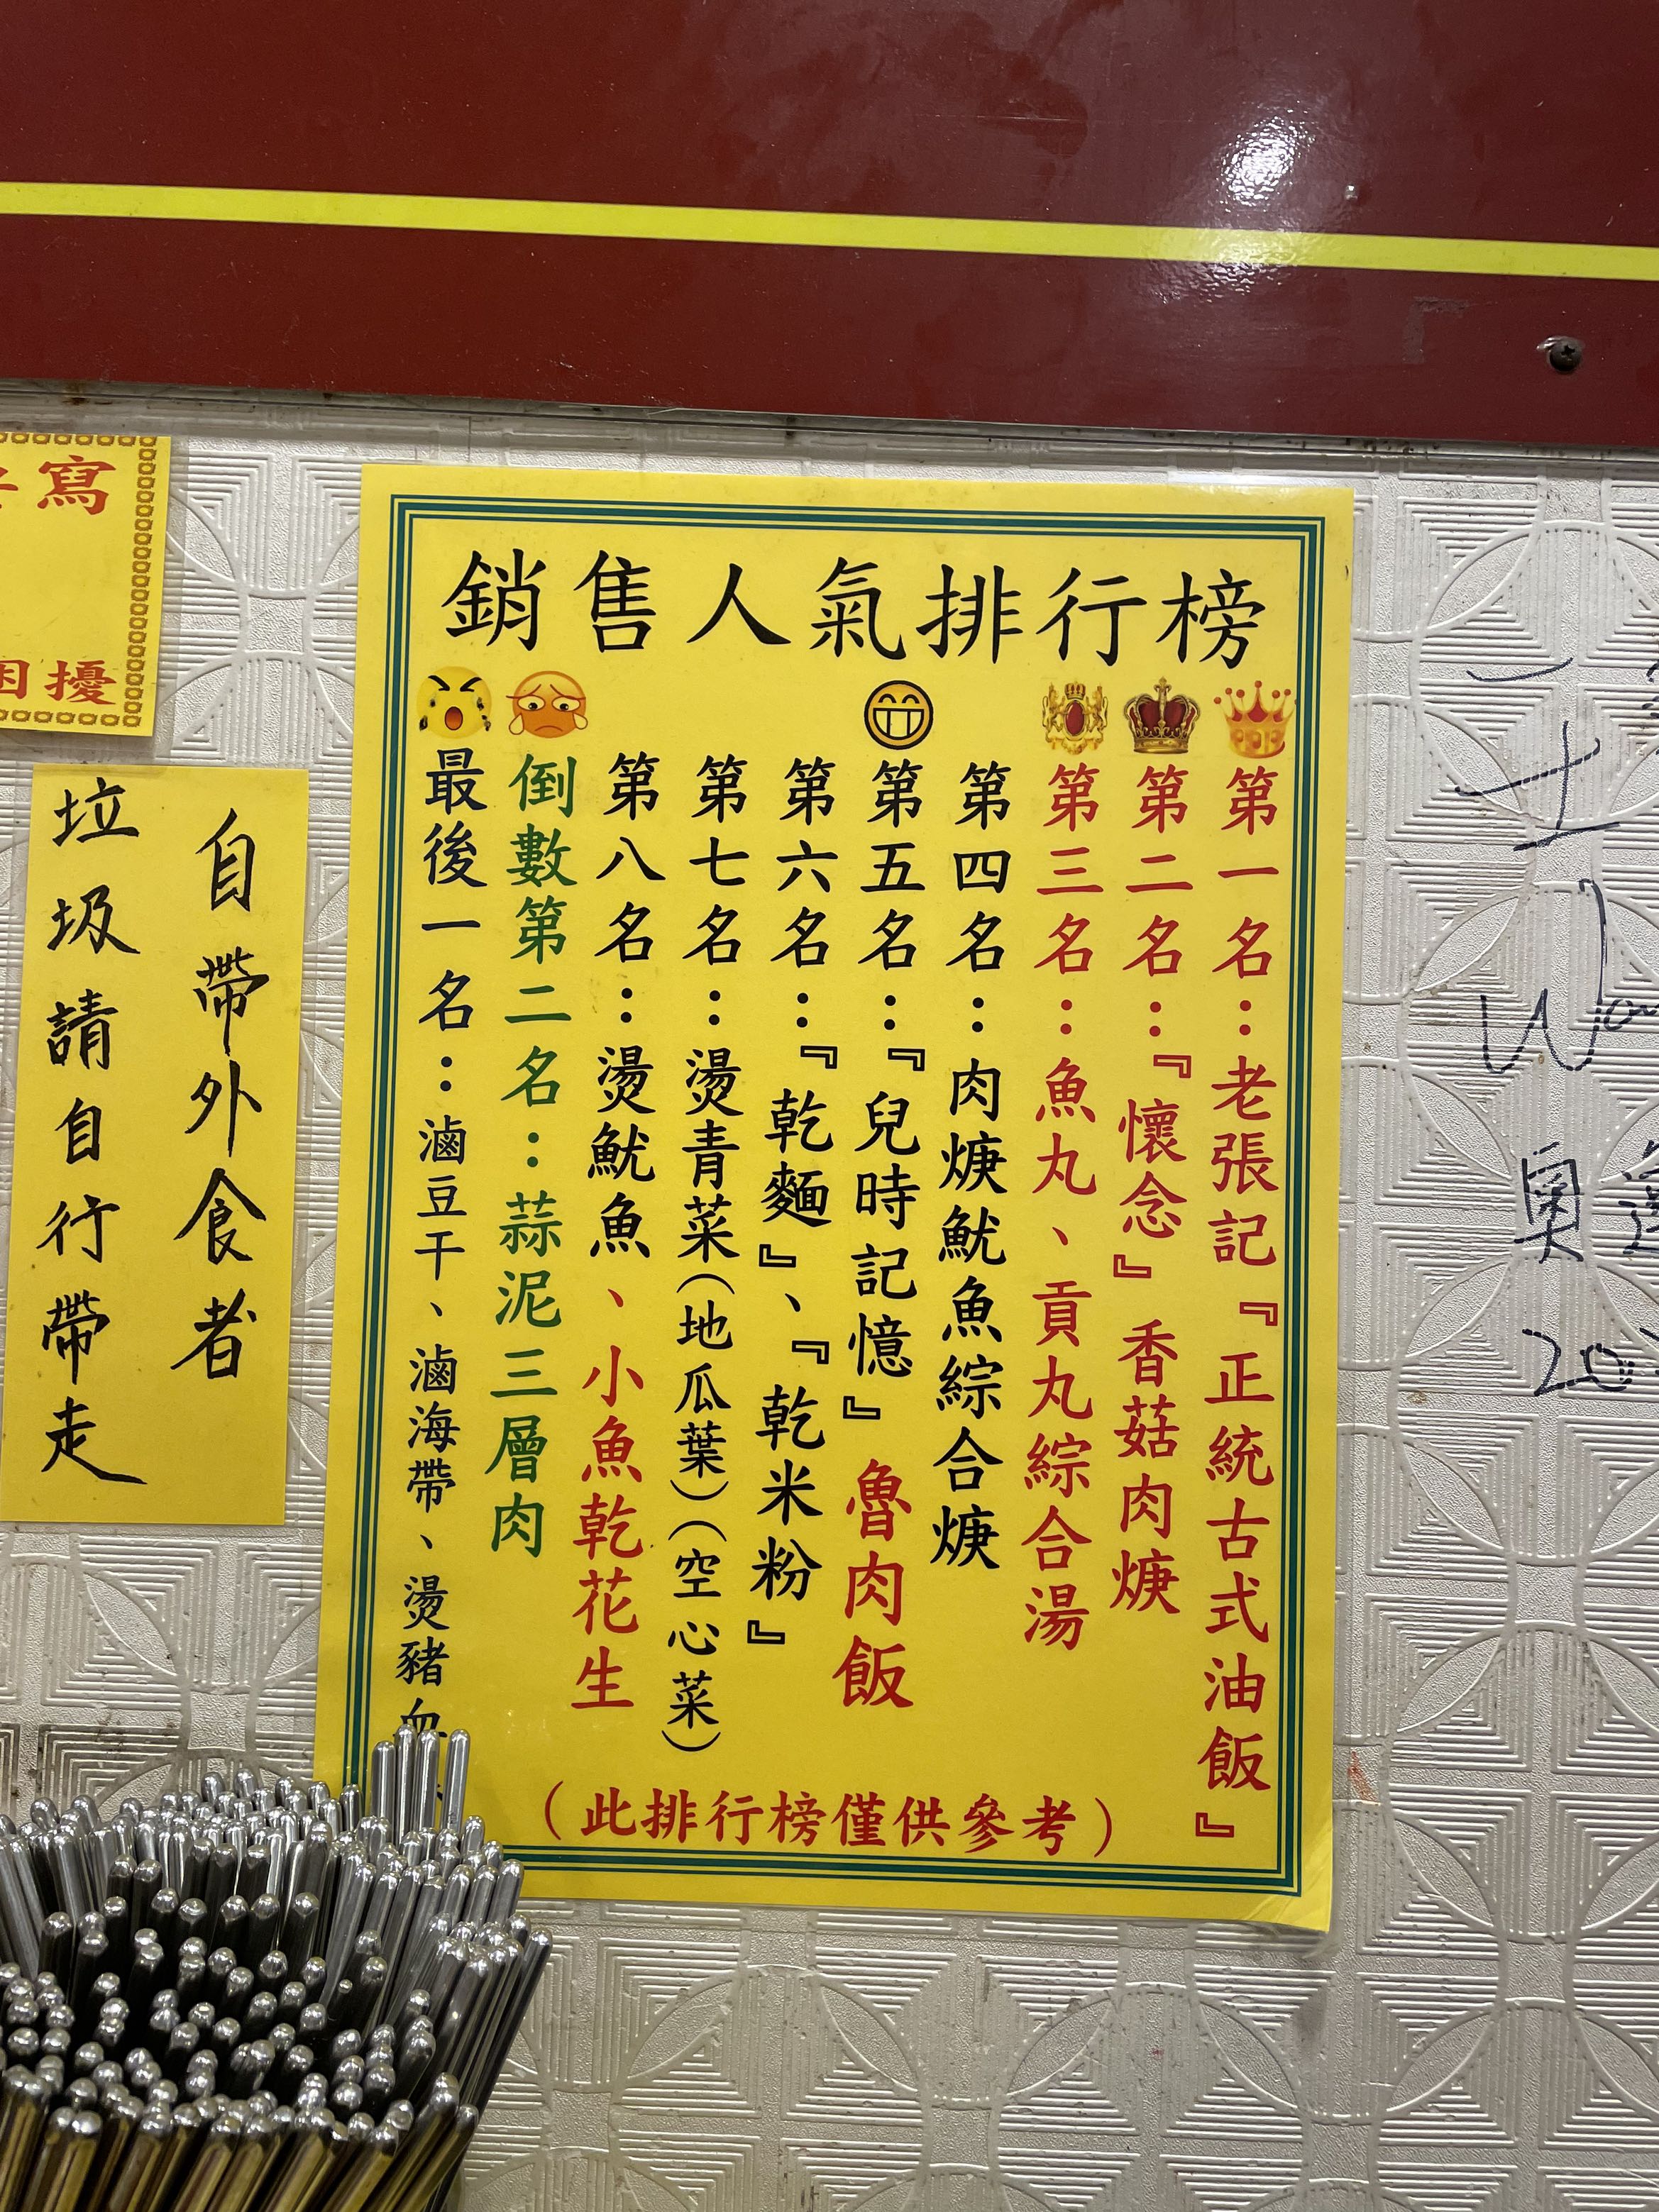 銷售人氣排行榜
第一名：老張記『正統古式油飯』
第二名：『懷念』香菇肉焿
第三名：魚丸、貢丸綜合湯
第四名：肉焿魷魚綜合焿
第五名：『兒時記憶』魯肉飯
第六名：『乾麵』、『乾米粉』
第七名：燙青菜(地瓜葉)(空心菜)
第八名：燙魷魚、小魚乾花生
倒數第二名：蒜泥三層肉
最後一名：滷豆干、滷海帶、燙豬血
（此排行榜僅供參考）
寫
困擾
自帶外食者
垃圾請自行帶走